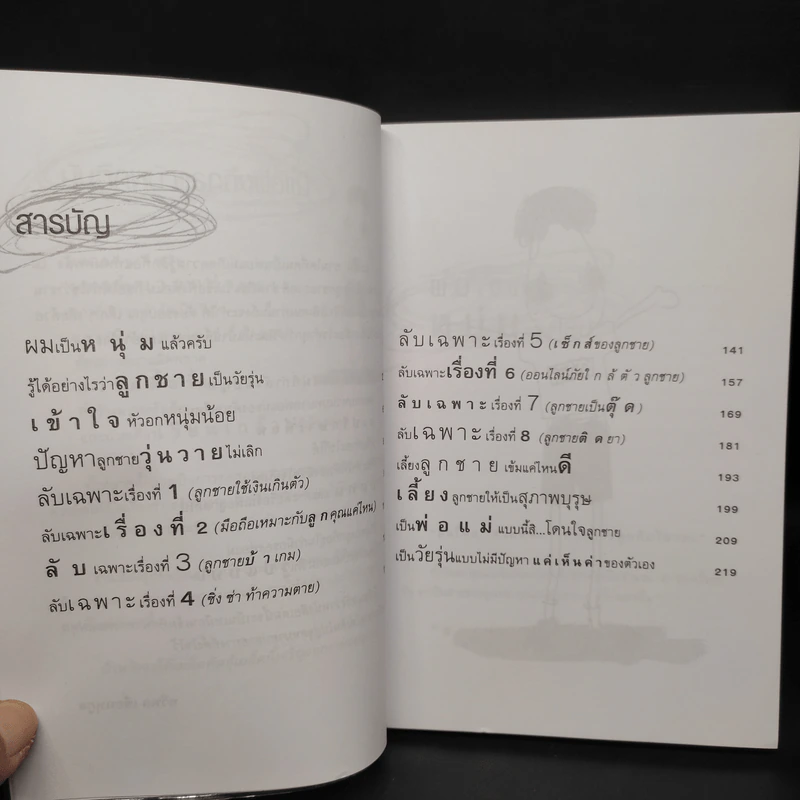 สารบัญ
ผมเป็นหนุ่มแล้วครับ
รู้ได้อย่างไรว่าลูกชายเป็นวัยรุ่น
เข้าใจ หัวอกหนุ่มน้อย
ปัญหาลูกชายวุ่นวายไม่เลิก
ลับเฉพาะเรื่องที่ 1 (ลูกชายใช้เงินเกินตัว)
ลับเฉพาะเรื่องที่ 2 (มือถือเหมาะกับลูกคุณแค่ไหน)
ลับเฉพาะเรื่องที่ 3 (ลูกชายบ้าเกม)
ลับเฉพาะเรื่องที่ 4 (ซิ่ง ซ่า ท้าความตาย)
ลับเฉพาะเรื่องที่ 5 (เซ็กส์ของลูกชาย) 141
ลับเฉพาะเรื่องที่ 6 (ออนไลน์ภัยใกล้ตัวลูกชาย) 157
ลับเฉพาะเรื่องที่ 7 (ลูกชายเป็นตุ๊ด) 169
ลับเฉพาะเรื่องที่ 8 (ลูกชายติดยา) 181
เลี้ยงลูกชาย เข้มแค่ไหนดี 193
เลี้ยงลูกชายให้เป็นสุภาพบุรุษ 199
เป็นพ่อแม่แบบนี้สิ...โดนใจลูกชาย 209
เป็นวัยรุ่นแบบไม่มีปัญหา แค่เห็นค่าของตัวเอง 219